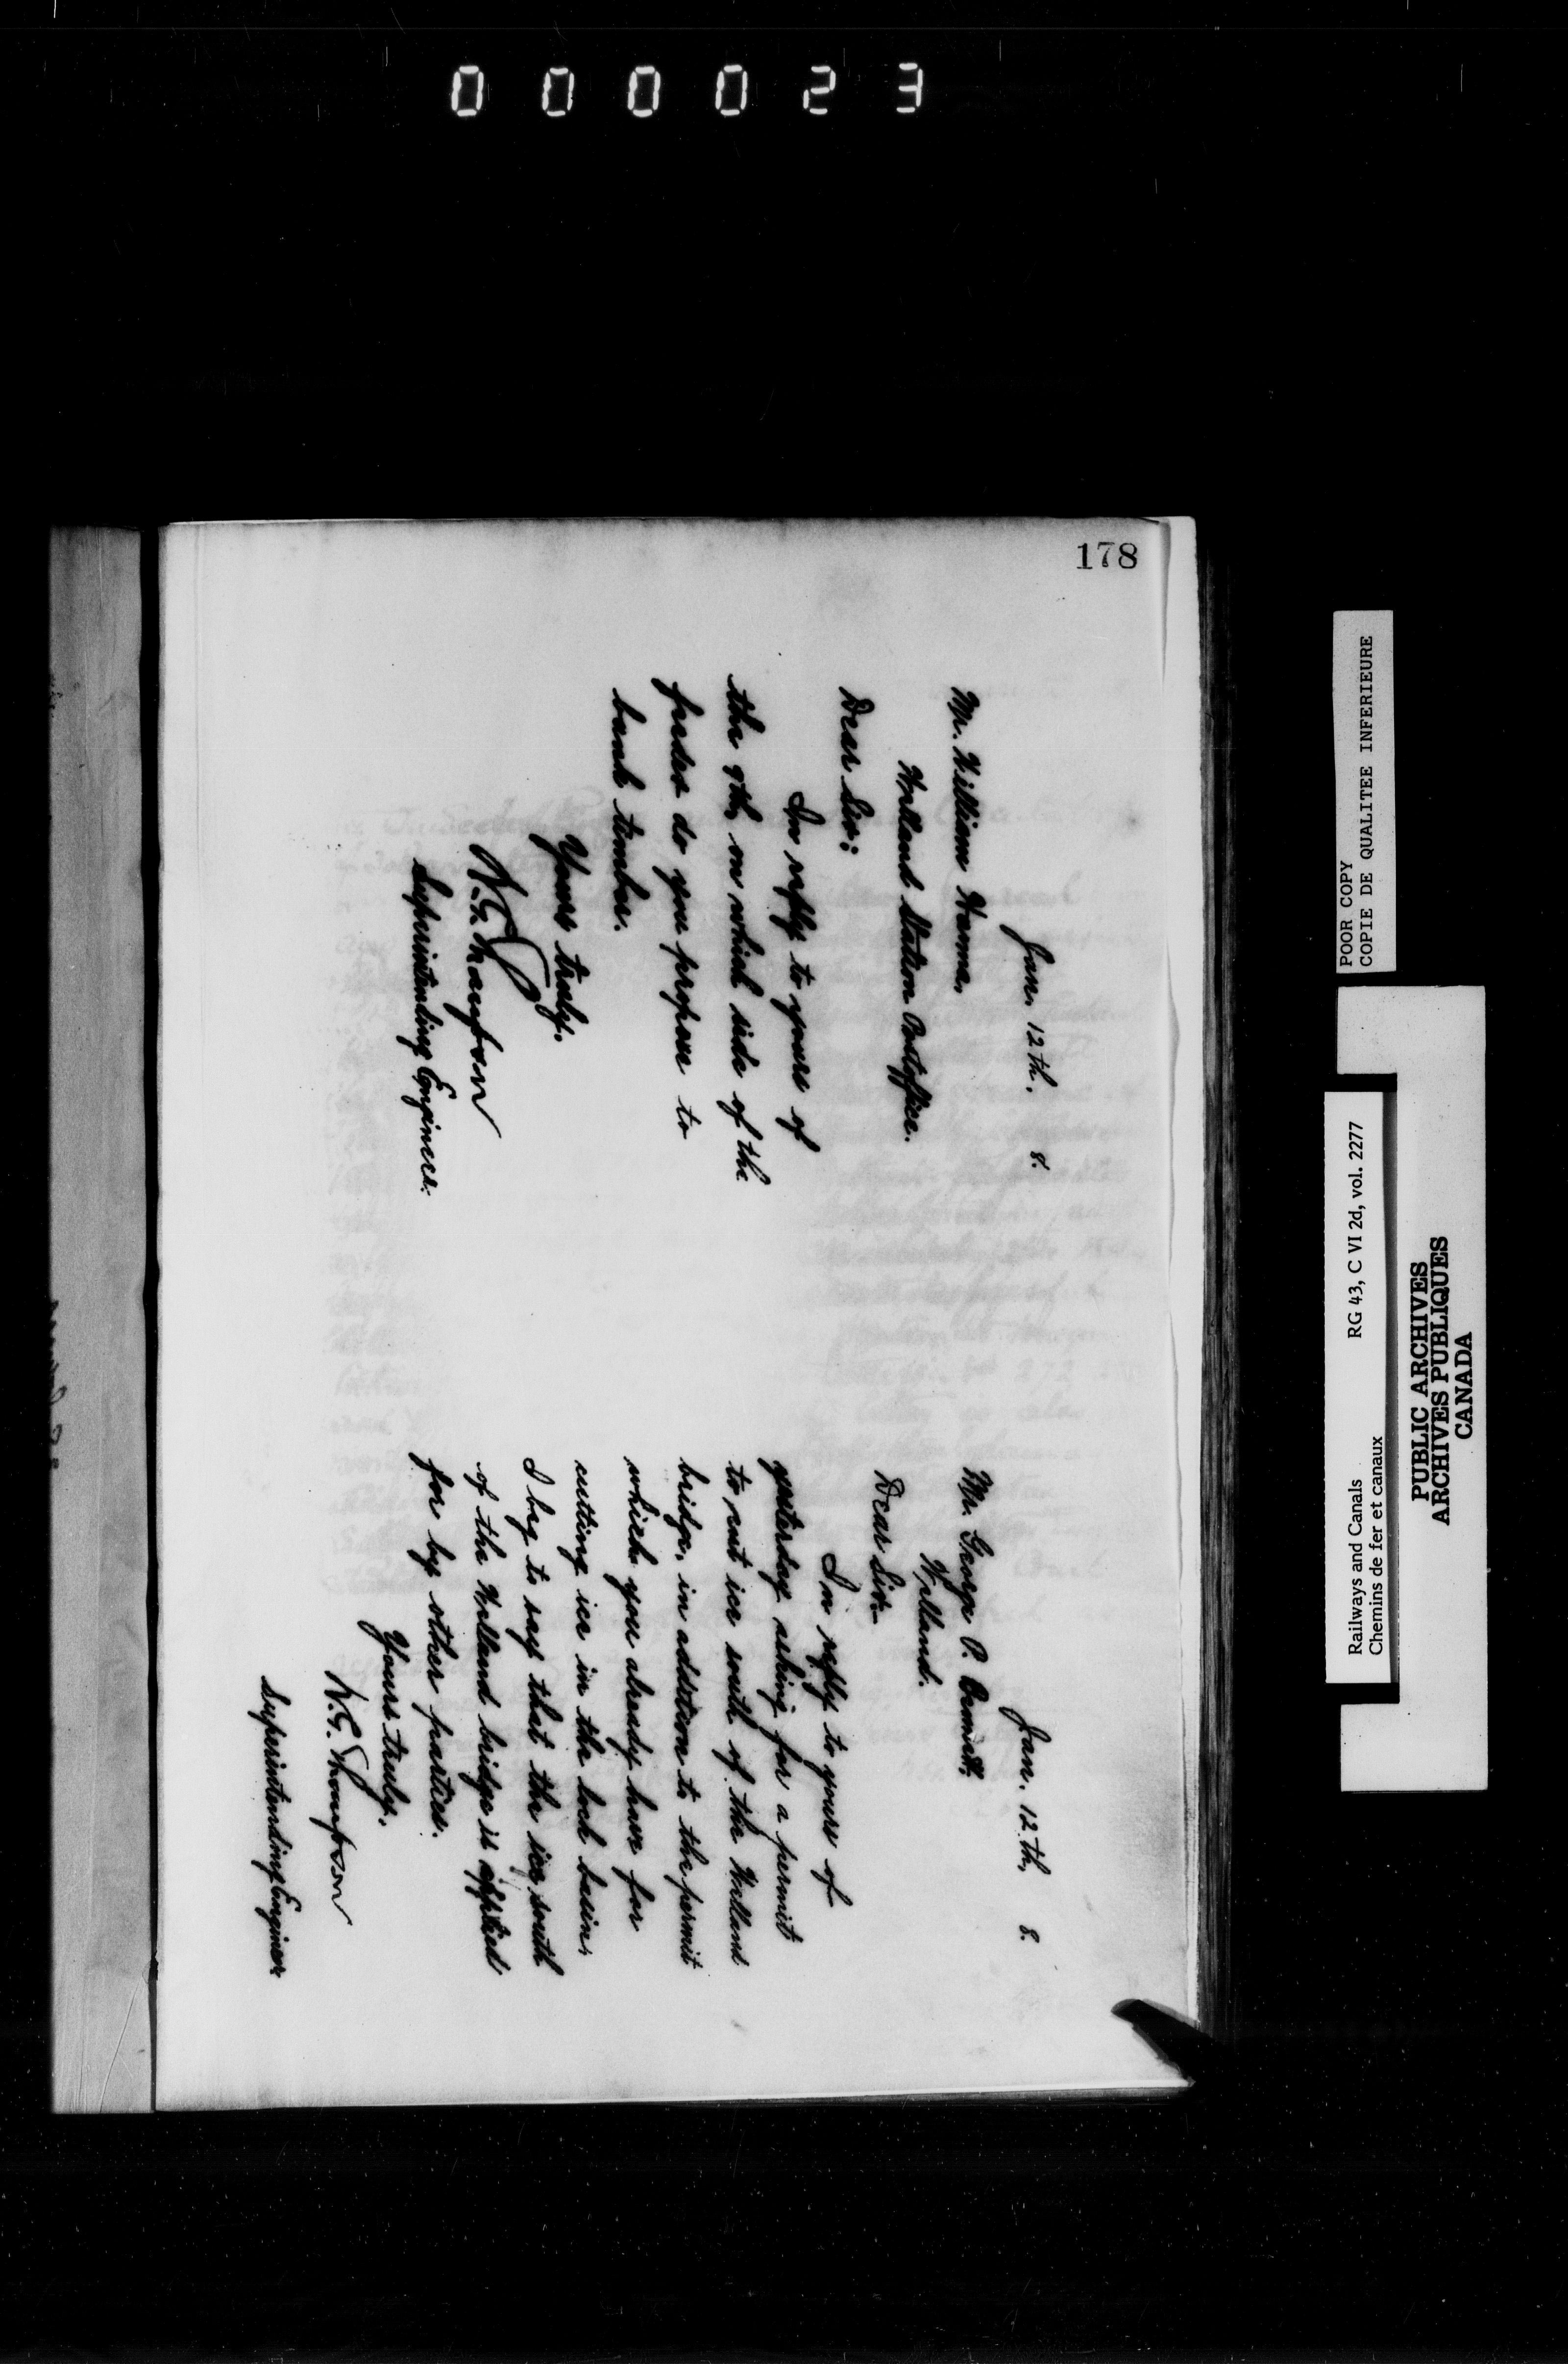 000023
178
Jan. 12th. 8.
Mr. William Hanna.
Welland Station Postoffice.
Dear Sir:
In reply to yours of
the 9th, on which side of the
feeder do you propose to
bank timber.
Yours truly.
W.G. Thompson
Superintending Engineer.
Jan. 12th, 8.
Mr. George P.
Welland.
Dear Sir
In reply to yours of
yesterday asking for a permit
to cut ice south of the Welland
bridge, in addition to the permit
which you already have for
cutting ice in the lock basin,
I beg to say that the ice south
of the Welland bridge is applied
for by other parties.
Yours truly.
W.G. Thompson
Superintending Engineer
POOR COPY
COPIE DE QUALITEE INFERIEURE
Railways and Canals RG 43, C VI 2d, vol. 2277
Chemins de fer et canaux
PUBLIC ARCHIVES
ARCHIVES PUBLIQUES
CANADA